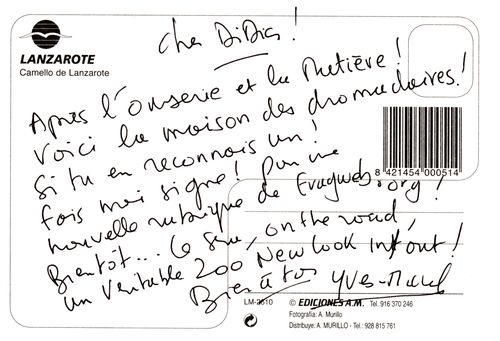 LANZAROTE
Camello de Lanzarote
Cher DiDier !
Après l'ourserie et la Metière !
Voici la maison des dromadaires !
Si tu en reconnais un !
fais moi signe ! Pour une
nouvelle rubrique de Evagweb.org !
Bientôt... Ce sera, on the road,
un véritable Zoo New Look In/out !
Bien à toi Yves-Marie
8 421454 000514
LM-2610 © EDICIONES A.M. Tel. 916 370 246
Fotografía: A. Murillo
Distribuye: A. MURILLO - Tel.: 928 815 761